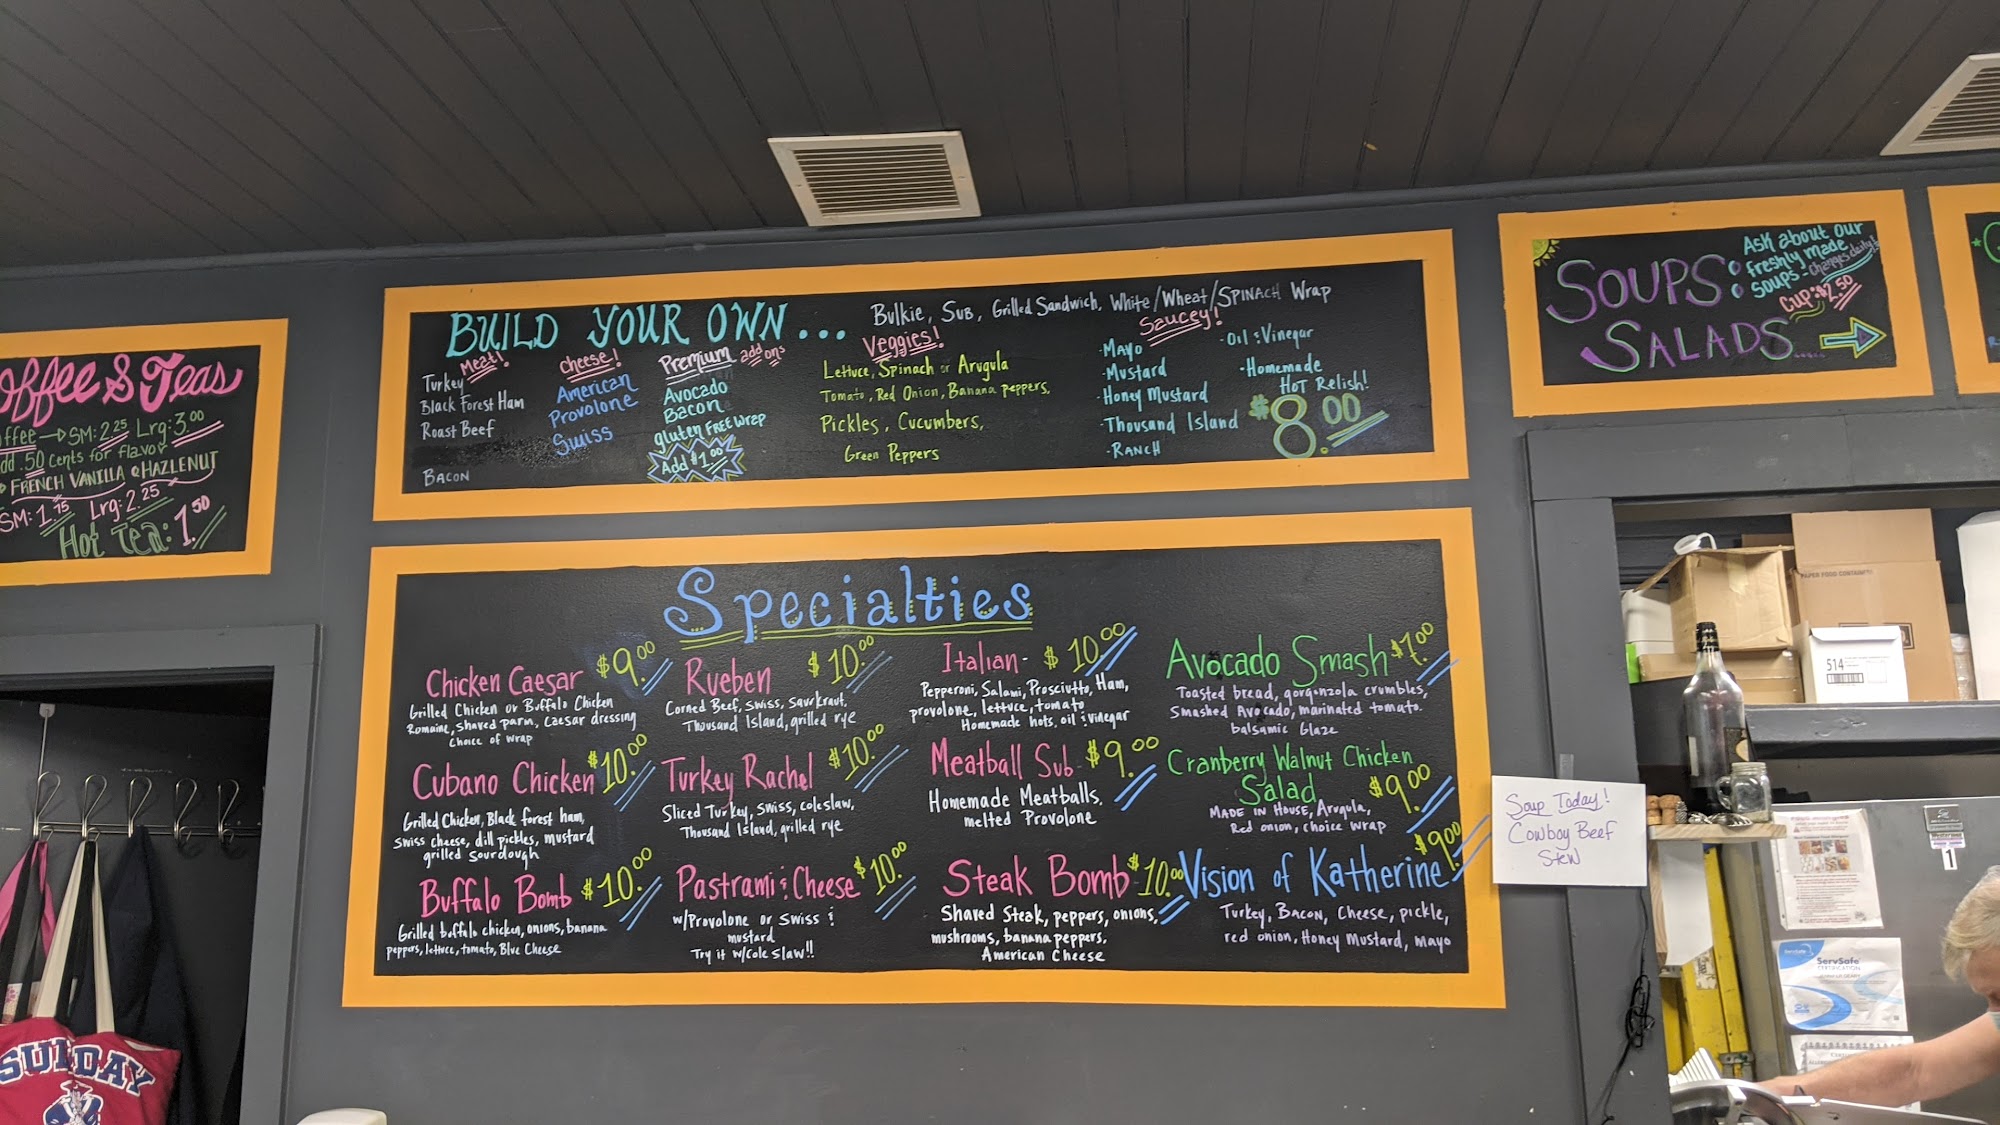 Coffee & Teas
SM: 2.25 Lrg: 3.00
.50 cents for flavor
FRENCH VANILLA & HAZLENUT
SM: 1.75 Lrg: 2.25
Hot Tea: 1.50
BUILD YOUR OWN...
Bulkie, Sub, Grilled Sandwich, White/Wheat/SPINACH Wrap
Meat!
Turkey
Black Forest Ham
Roast Beef
BACON
Cheese!
American
Provolone
Swiss
Premium add ons
Avocado
Bacon
gluten FREE Wrap
Add $1.00
Veggies!
Lettuce, Spinach or Arugula
Tomato, Red Onion, Banana peppers,
Pickles, Cucumbers,
Green Peppers
Saucey!
·Mayo
·Mustard
·Honey Mustard
·Thousand Island
·RANCH
·Oil & Vinegar
·Homemade
HOT Relish!
$8.00
SOUPS &
SALADS.....
Ask about our
freshly made
soups - changes daily!
Cup: $2.50
Specialties
Chicken Caesar $9.00
Grilled Chicken or Buffalo Chicken
Romaine, shaved parm, caesar dressing
choice of wrap
Cubano Chicken $10.00
Grilled Chicken, Black forest ham,
swiss cheese, dill pickles, mustard
grilled sourdough
Buffalo Bomb $10.00
Grilled buffalo chicken, onions, banana
peppers, lettuce, tomato, Blue Cheese
Rueben $10.00
Corned Beef, swiss, saurkraut,
Thousand Island, grilled rye
Turkey Rachel $10.00
Sliced Turkey, swiss, coleslaw,
Thousand Island, grilled rye
Pastrami & Cheese $10.00
w/Provolone or swiss &
mustard
Try it w/cole slaw!!
Italian - $10.00
Pepperoni, Salami, Prosciutto, Ham,
provolone, lettuce, tomato
Homemade hots, oil & vinegar
Meatball Sub - $9.00
Homemade Meatballs,
melted Provolone
Steak Bomb $10.00
Shaved steak, peppers, onions,
mushrooms, banana peppers,
American Cheese
Avocado Smash $7.00
Toasted bread, gorgonzola crumbles,
Smashed Avocado, marinated tomato.
balsamic Glaze
Cranberry Walnut Chicken
Salad $9.00
MADE IN HOUSE, Arugula,
Red onion, choice wrap
Vision of Katherine $9.00
Turkey, Bacon, Cheese, pickle,
red onion, Honey Mustard, mayo
Soup Today!
Cowboy Beef
Stew
514
ServSafe
CERTIFICATION
1
SUNDAY